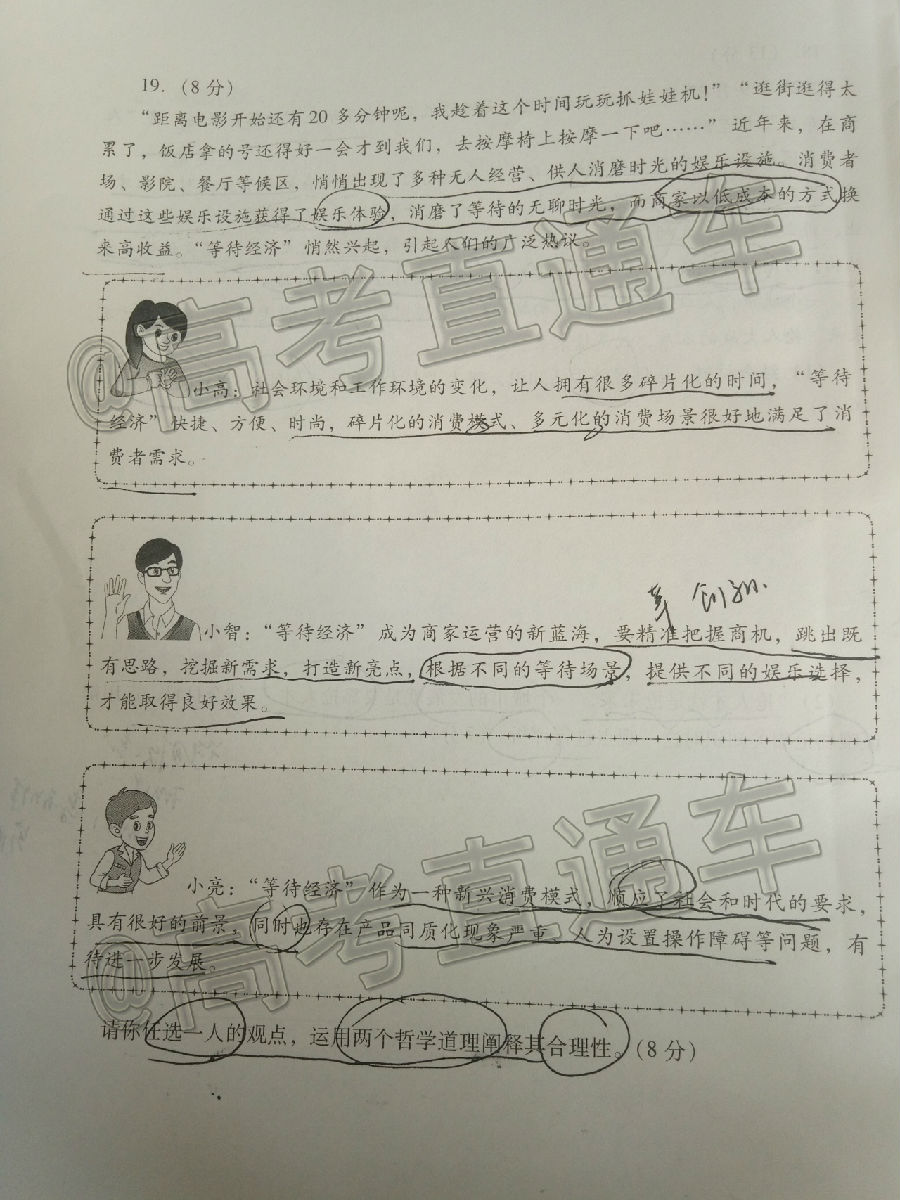 19.（8 分）
“距离电影开始还有 20 多分钟呢，我趁着这个时间玩玩抓娃娃机！”“逛街逛得太
累了，饭店拿的号还得好一会才到我们，去按摩椅上按摩一下吧……”近年来，在商
场、影院、餐厅等候区，悄悄出现了多种无人经营、供人消磨时光的娱乐设施。消费者
通过这些娱乐设施获得了娱乐体验，消磨了等待的无聊时光，而商家以低成本的方式换
来高收益。“等待经济”悄然兴起，引起人们的广泛热议。
@高考直通车
小高：社会环境和工作环境的变化，让人拥有很多碎片化的时间，“等待
经济”快捷、方便、时尚，碎片化的消费模式、多元化的消费场景很好地满足了消
费者需求。
创新
小智：“等待经济”成为商家运营的新蓝海，要精准把握商机，跳出既
有思路，挖掘新需求，打造新亮点，根据不同的等待场景，提供不同的娱乐选择，
才能取得良好效果。
@高考直通车
小亮：“等待经济”作为一种新兴消费模式，顺应了社会和时代的要求，
具有很好的前景，同时也存在产品同质化现象严重、人为设置操作障碍等问题，有
待进一步发展。
请你任选一人的观点，运用两个哲学道理阐释其合理性。（8 分）